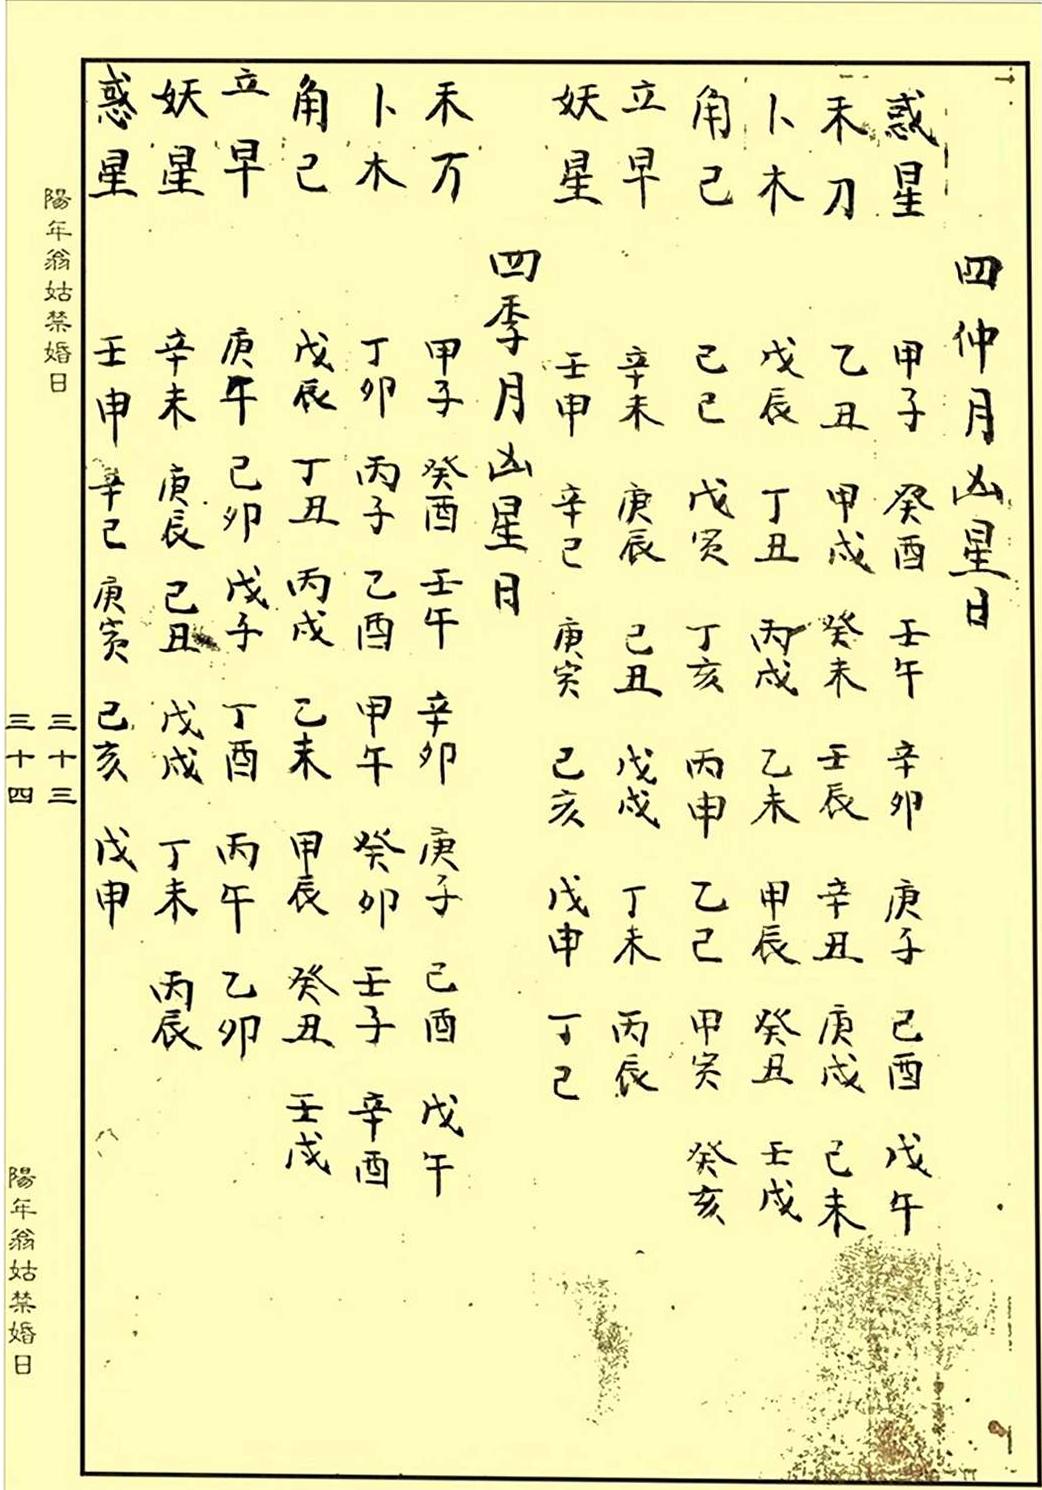 四仲月凶星日
惑星 甲子 癸酉 壬午 辛卯 庚子 己酉 戊午
禾刀 乙丑 甲戌 癸未 壬辰 辛丑 庚戌 己未
卜木 戊辰 丁丑 丙戌 乙未 甲辰 癸丑 壬戌
角己 己巳 戊寅 丁亥 丙申 乙巳 甲寅 癸亥
立早 辛未 庚辰 己丑 戊戌 丁未 丙辰
妖星 壬申 辛巳 庚寅 己亥 戊申 丁巳
四季月凶星日
禾万 甲子 癸酉 壬午 辛卯 庚子 己酉 戊午
卜木 丁卯 丙子 乙酉 甲午 癸卯 壬子 辛酉
角己 戊辰 丁丑 丙戌 乙未 甲辰 癸丑 壬戌
立早 庚午 己卯 戊子 丁酉 丙午 乙卯
妖星 辛未 庚辰 己丑 戊戌 丁未 丙辰
惑星 壬申 辛巳 庚寅 己亥 戊申
陽年翁姑禁婚日
三十三
三十四
陽年翁姑禁婚日